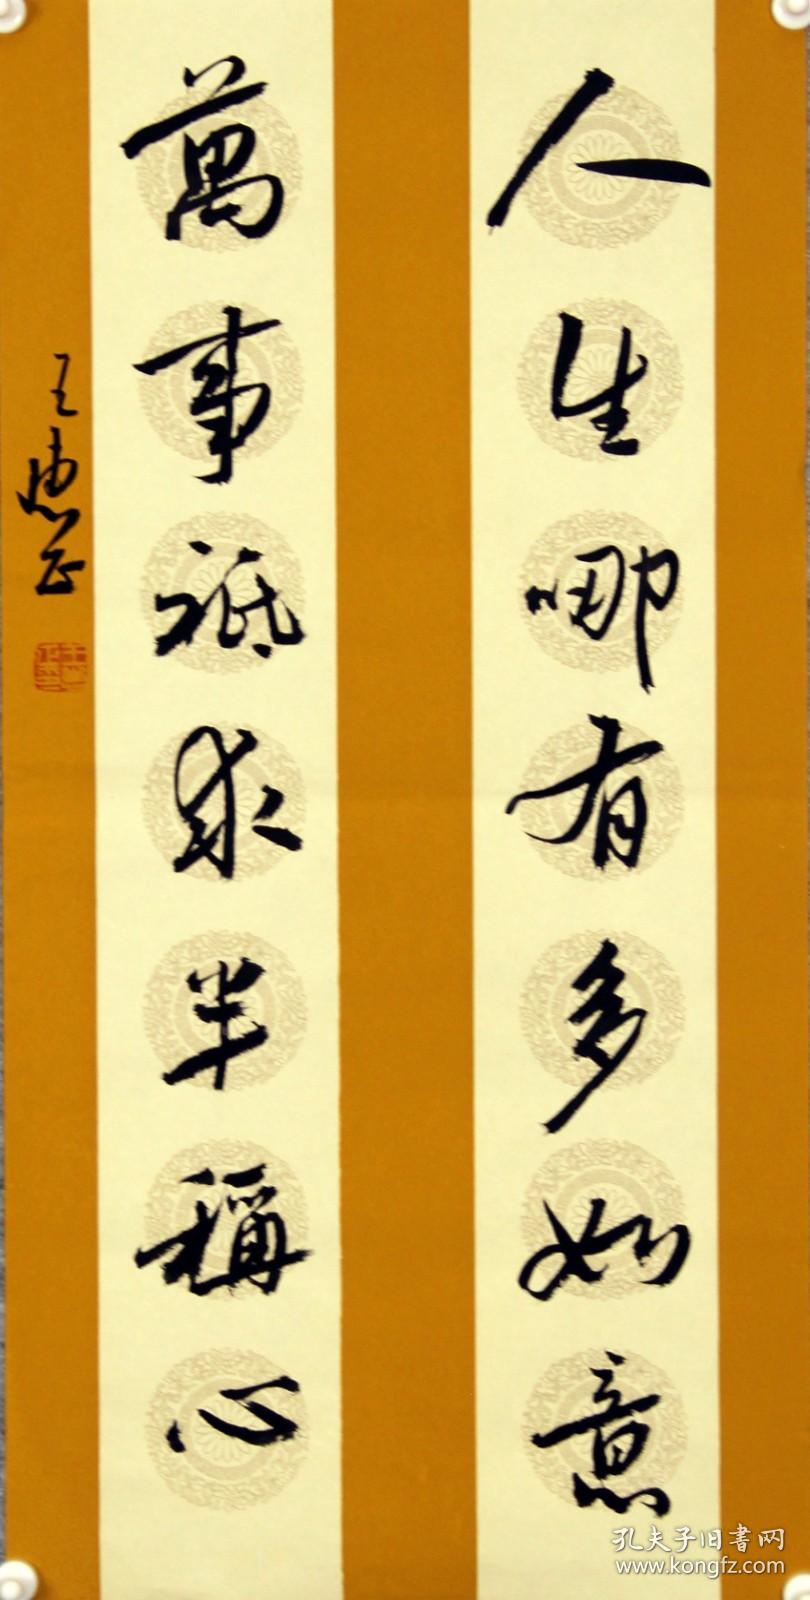 人生哪有多如意
萬事祗求半稱心
王惠
孔夫子旧書网
www.kongfz.com